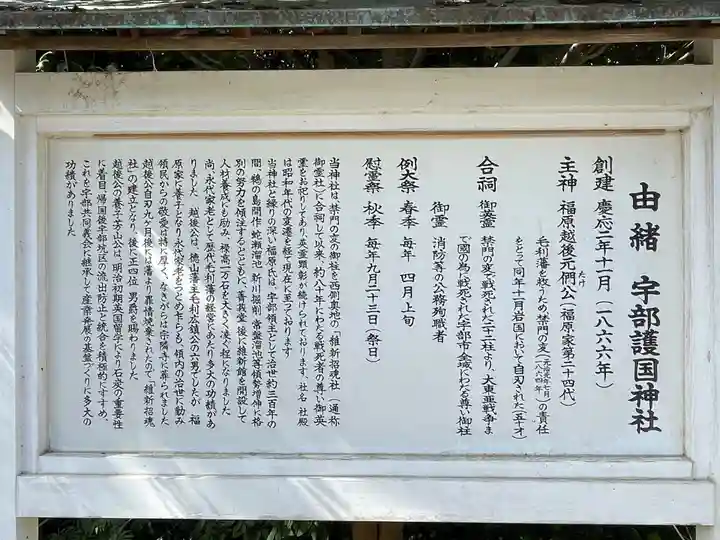 由緒 宇部護国神社
創建 慶応二年十一月（一八六六年）
主神 福原越後元僴公（福原家第二十四代）
たけ
毛利藩を救うため禁門の変（元治元年七月 一八六四年）の責任
をとって同年十一月岩国において自刃された（五十才）
合祠 御英霊 禁門の変で戦死された二十二柱より、大東亜戦争ま
で国の為に戦死された宇部市全域にわたる尊い御柱
御霊 消防等の公務殉職者
例大祭 春季 毎年 四月上旬
慰霊祭 秋季 毎年九月二十三日（祭日）
当神社は、禁門の変の御柱を西側奥地の「維新招魂社」（通称
御霊社）に合祠して以来、約八十年にわたる戦死者の尊い御英
霊をお祀りしてあり、英霊顕彰が続けられております。社名 社殿
は昭和年代の変遷を経て現在に至っております
当神社と縁りの深い福原氏は、宇部領主として治世約三百年の
間、鵜の島開作 蛇瀬溜池 新川掘削 常盤溜池等領勢増伸に格
別の努力を傾注するとともに、菁莪堂 後に維新館を開設して
人材養成にも励み、禄高一万石を大きく凌ぐ程になりました
尚、永代家老として歴代毛利藩の経営にあたり多大の功績があ
りました 越後公は、徳山藩主毛利広鎮公の六男でしたが 福
原家に養子となり永代家老をつとめ乍らも、領内の治世に励み
領民からの敬愛は特に厚く、なきがらは宗隣寺に葬られました
越後公自刃九ヶ月後には藩より罪情焼棄されたので「維新招魂
社」の建立となり、後に正四位 男爵を賜わりました
越後公の養子芳山公は、明治初期英国留学により石炭の重要性
に着目、帰国後宇部炭区の流出防止と統合を積極的にすすめ、
これを宇部共同義会に継承して産業発展の基盤づくりに多大の
功績がありました